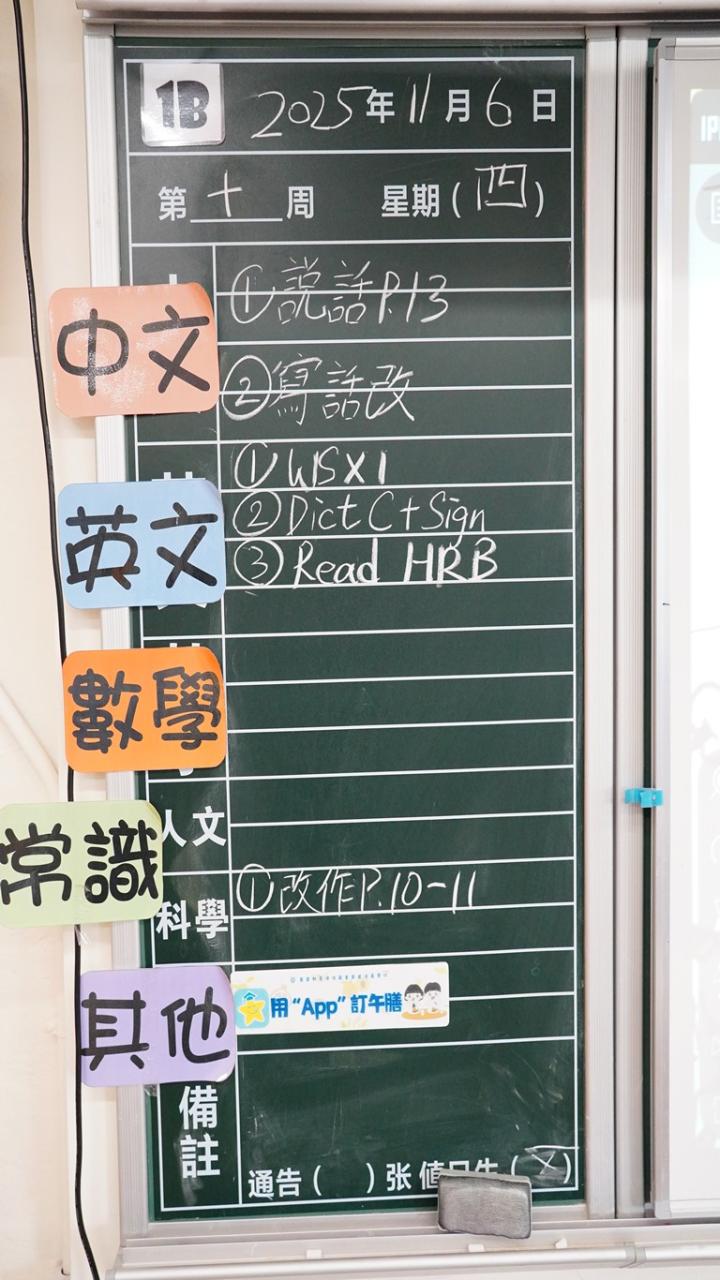 1B 2025年11月6日
第十周 星期(四)
①説話P.13
中文
②寫話改
①WSX1
②Dict C+Sign
英文
③Read HRB
數學
人文
常識
①改作P.10-11
科學
用“App”訂午膳
其他
備註
通告( )张 值日生(X)